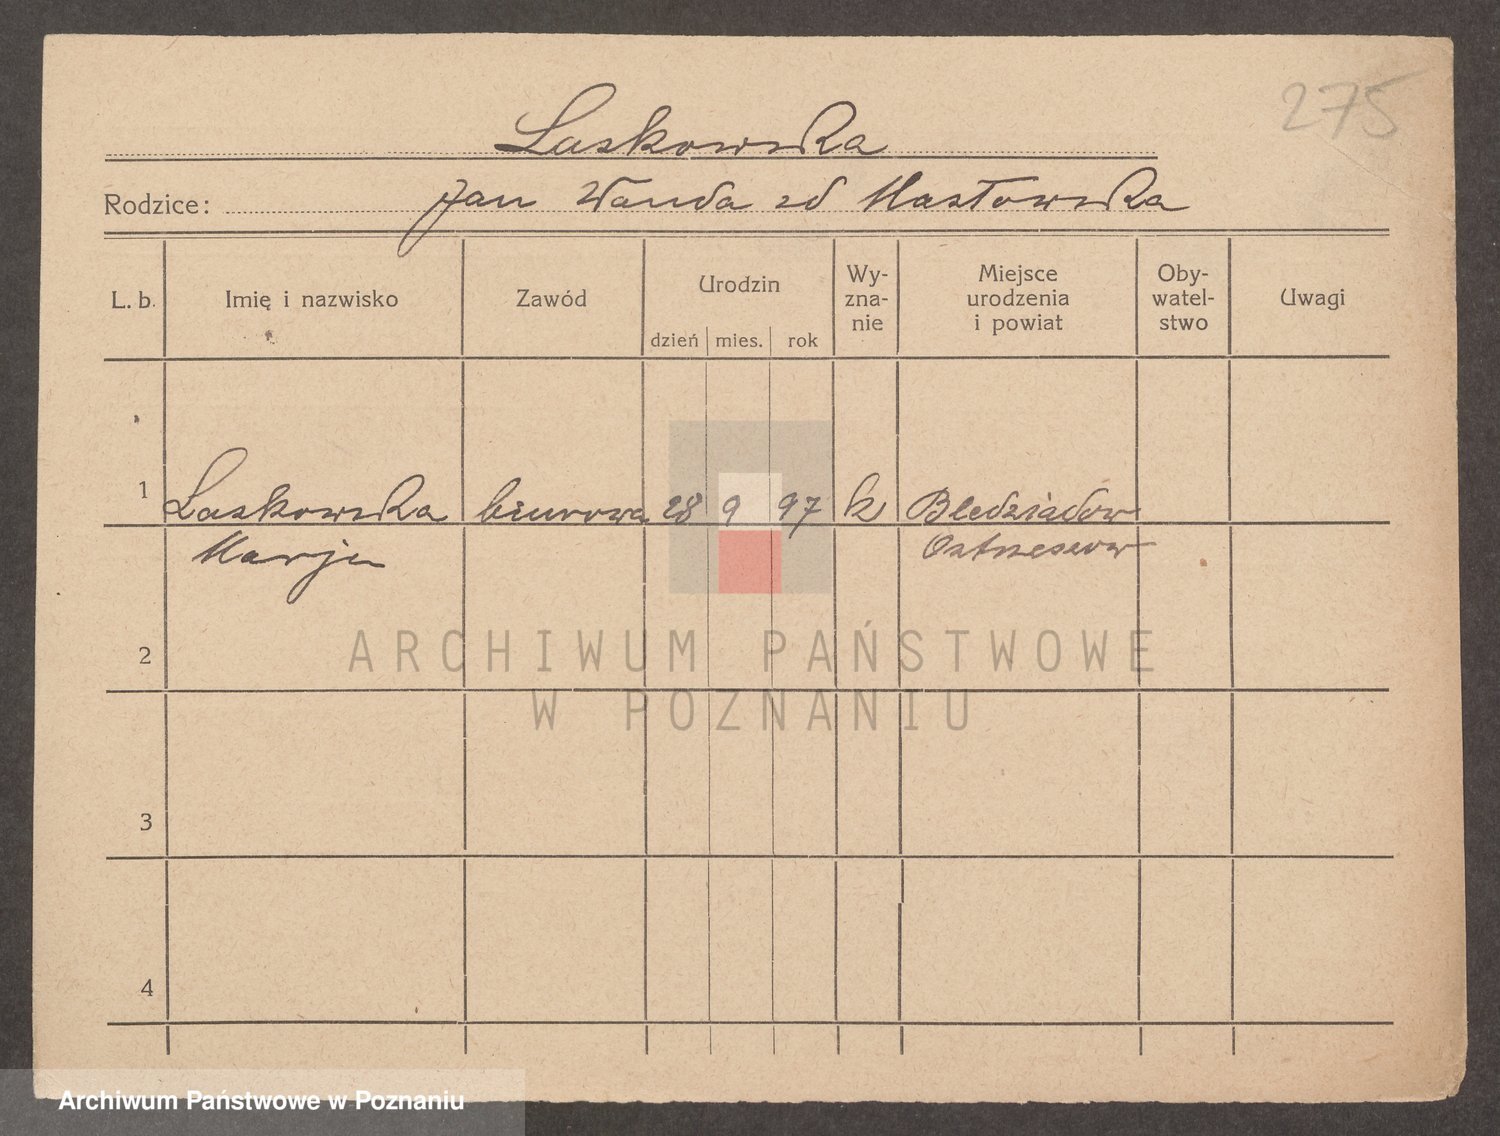 275
Laskowska
Rodzice: Jan Wanda zd Masłowska
L. b. Imię i nazwisko Zawód Urodzin dzień mies. rok Wy-zna-nie Miejsce urodzenia i powiat Oby-watel-stwo Uwagi
1 Laskowska biurowa 28 9 97 k Bledzianów
Marja Ostrzeszow
2
3
4
ARCHIWUM PAŃSTWOWE
W POZNANIU
Archiwum Państwowe w Poznaniu